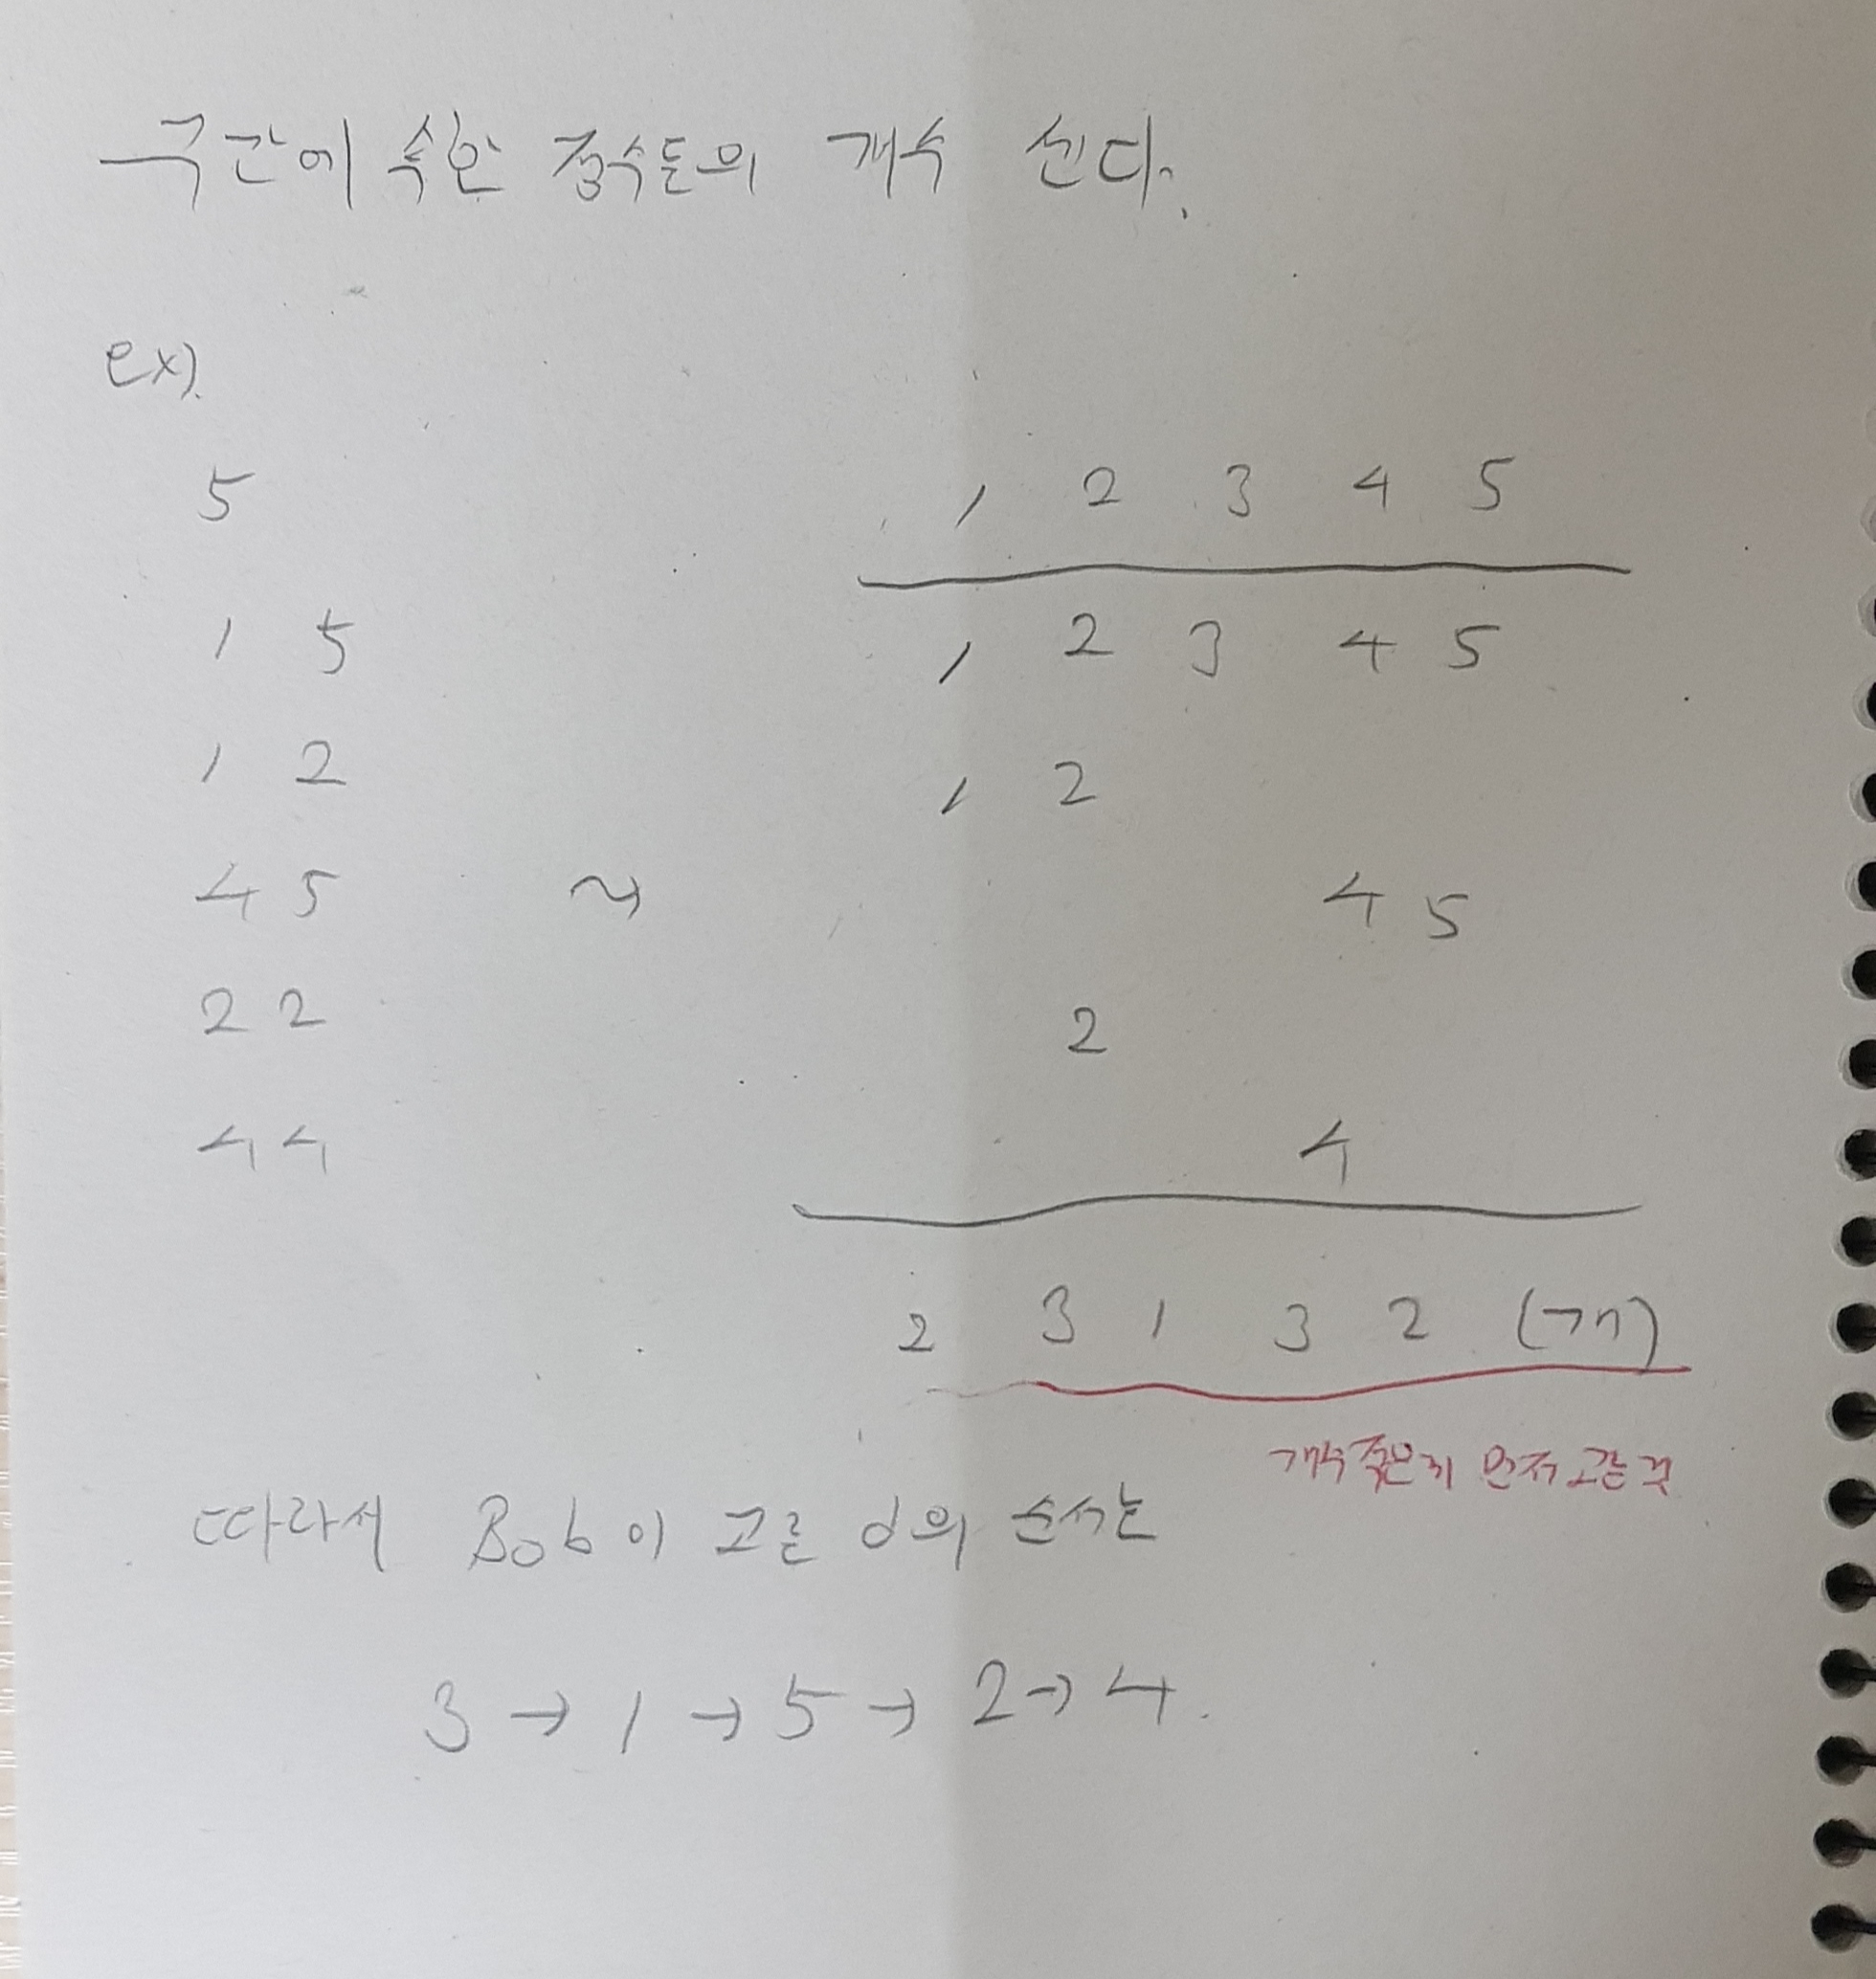 구간에 속한 정수들의 개수 센다.
ex).
5 1 2 3 4 5
1 5 1 2 3 4 5
1 2 1 2
4 5 ⇝ 4 5
2 2 2
4 4 4
2 3 1 3 2 (개)
개수 적은게 먼저 고른 것
따라서 Bob이 고른 d의 순서는
3 → 1 → 5 → 2 → 4.